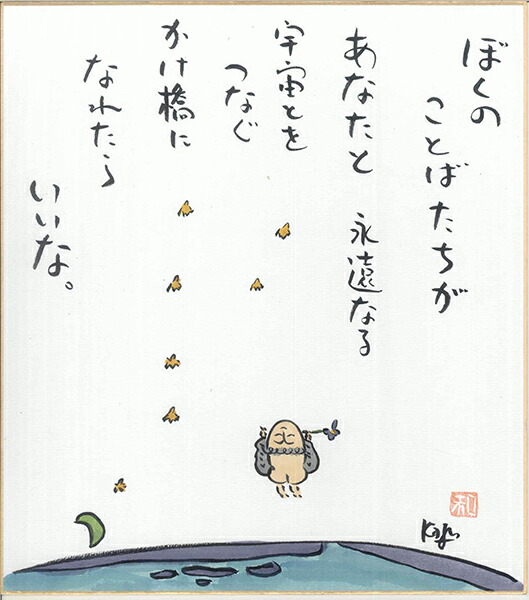 ぼくの
ことばたちが
あなたと 永遠なる
宇宙とを
つなぐ
かけ橋に
なれたら
いいな。
和